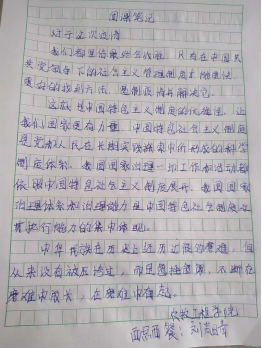 团课笔记
对于这次疫情
我们都坚信最终会战胜,只有在中国共
制度下的社会主义
更好的找到方法,
这就是中国特色社会主义制度的优越性,让
我们国家更有力量,中国特色社会主义制度
是党和人民在长期实践探索中形成的科学
制度体系,我国国家治理一切工作和活动都
依照中国特色社会主义制度展开,我国国家
治理体系和治理能力是中国特色社会主义制度及
其执行能力的集中体现。
中华民族在历史上经历过很多磨难,但
从来没有被压垮过,而是愈挫愈勇,不断在
磨难中成长,在磨难中奋起。
工程学院